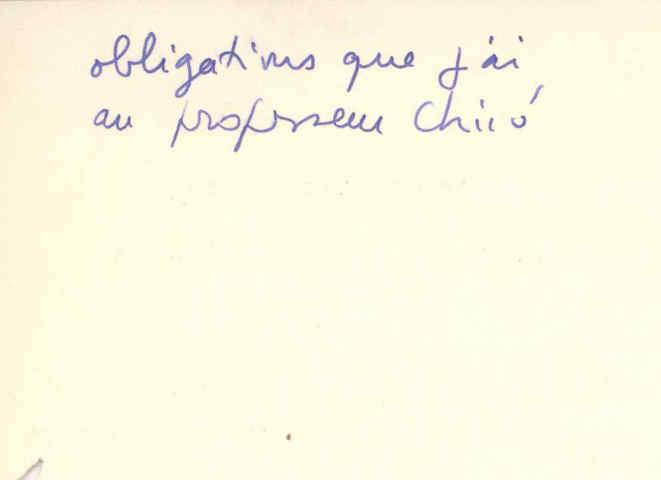 obligations que j'ai
au professeur Chiró